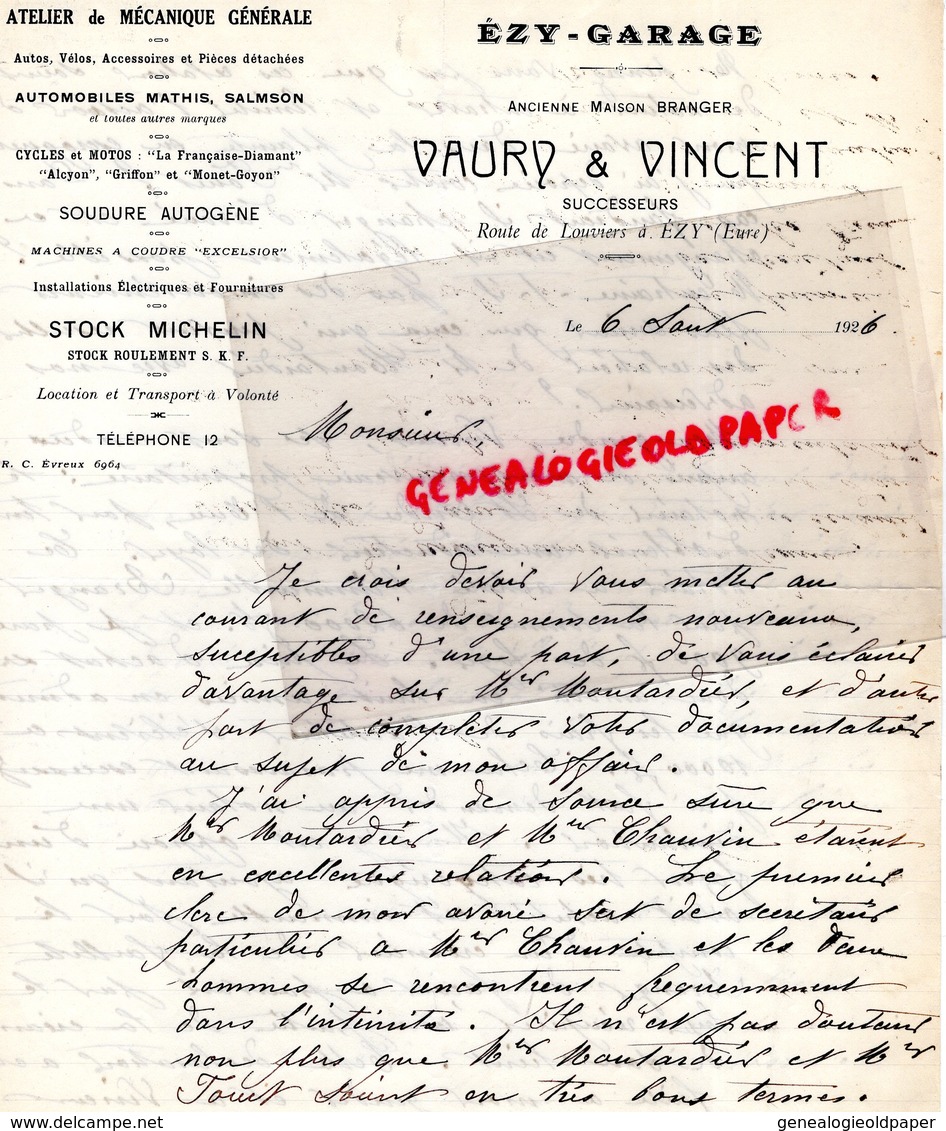 ATELIER de MÉCANIQUE GÉNÉRALE
Autos, Vélos, Accessoires et Pièces détachées
AUTOMOBILES MATHIS, SALMSON
et toutes autres marques
CYCLES et MOTOS : "La Française-Diamant"
"Alcyon", "Griffon" et "Monet-Goyon"
SOUDURE AUTOGÈNE
MACHINES A COUDRE "EXCELSIOR"
Installations Électriques et Fournitures
STOCK MICHELIN
STOCK ROULEMENT S. K. F.
Location et Transport à Volonté
TÉLÉPHONE 12
R. C. Évreux 6964
ÉZY-GARAGE
ANCIENNE MAISON BRANGER
VAURY & VINCENT
SUCCESSEURS
Route de Louviers à ÉZY (Eure)
Le 6 Aout 1926.
Monsieur,
GENEALOGIEOLDPAPER
Je crois devoir vous mettre au
courant de renseignements nouveaux,
suceptibles d'une part, de vous éclairer
davantage sur Mer Moutardier, et d'autre
part de completer votre documentation
au sujet de mon affaire.
J'ai appris de source sûre que
Mer Moutardier et Mer Chauvin étaient
en excellentes relations. Le premier
clerc de mon avoué sert de secrétaire
particulier a Mer Chauvin et les deux
hommes se rencontrent frequemment
dans l'intimité. Il n'est pas douteux
non plus que Mer Moutardier et Mer
soient en très bons termes.
genealogieoldpaper